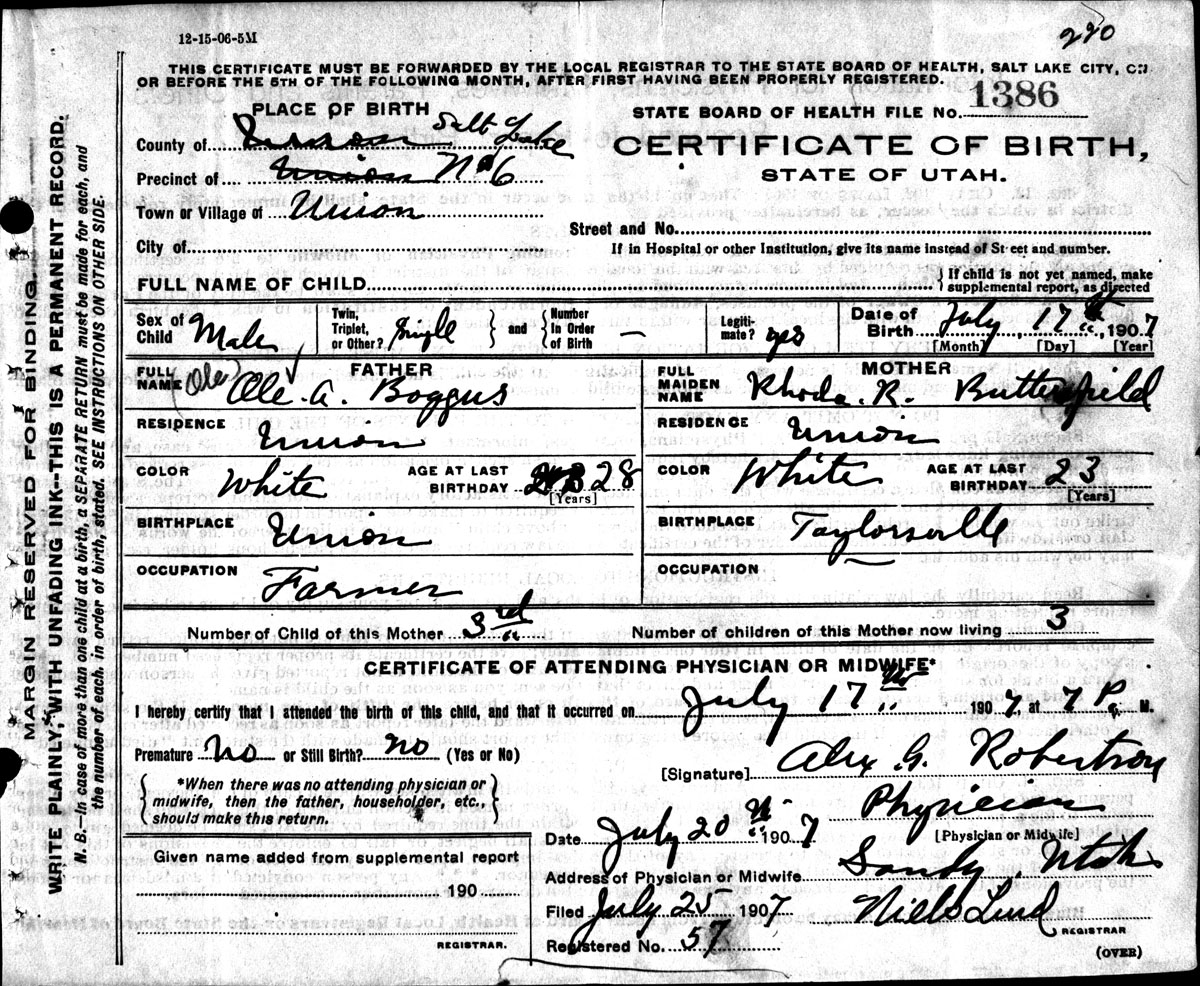 12-15-06-5M
220
THIS CERTIFICATE MUST BE FORWARDED BY THE LOCAL REGISTRAR TO THE STATE BOARD OF HEALTH, SALT LAKE CITY, ON
OR BEFORE THE 5TH OF THE FOLLOWING MONTH, AFTER FIRST HAVING BEEN PROPERLY REGISTERED.
PLACE OF BIRTH
STATE BOARD OF HEALTH FILE No. 1386
County of Union Salt Lake
CERTIFICATE OF BIRTH,
Precinct of Union No 6
STATE OF UTAH.
Town or Village of Union
Street and No.
City of
If in Hospital or other Institution, give its name instead of Street and number.
FULL NAME OF CHILD
} If child is not yet named, make supplemental report, as directed
Sex of Child Male
Twin, Triplet, or Other? Single } and { Number In Order of Birth —
Legitimate? yes
Date of Birth July 17th, 1907
[Month] [Day] [Year]
FATHER
FULL NAME (Ole) Ole. A. Boggus
MOTHER
FULL MAIDEN NAME Rhoda. R. Butterfield
RESIDENCE Union
RESIDENCE Union
COLOR White AGE AT LAST BIRTHDAY 28 [Years]
COLOR White AGE AT LAST BIRTHDAY 23 [Years]
BIRTHPLACE Union
BIRTHPLACE Taylorsville
OCCUPATION Farmer
OCCUPATION —
Number of Child of this Mother 3rd
Number of children of this Mother now living 3
CERTIFICATE OF ATTENDING PHYSICIAN OR MIDWIFE*
I hereby certify that I attended the birth of this child, and that it occurred on July 17th 1907 at 7 P. M.
Premature No or Still Birth? no (Yes or No)
[Signature] Alex G. Robertson
{ *When there was no attending physician or midwife, then the father, householder, etc., should make this return. }
Date July 20th 1907 Physician
[Physician or Midwife]
Given name added from supplemental report
Address of Physician or Midwife Sandy, Utah
190
Filed July 25 1907 Niels Lind
REGISTRAR
REGISTRAR.
Registered No. 57
(OVER)
MARGIN RESERVED FOR BINDING.
WRITE PLAINLY, WITH UNFADING INK--THIS IS A PERMANENT RECORD.
N. B.—In case of more than one child at a birth, a SEPARATE RETURN must be made for each, and
the number of each, in order of birth, stated. SEE INSTRUCTIONS ON OTHER SIDE.